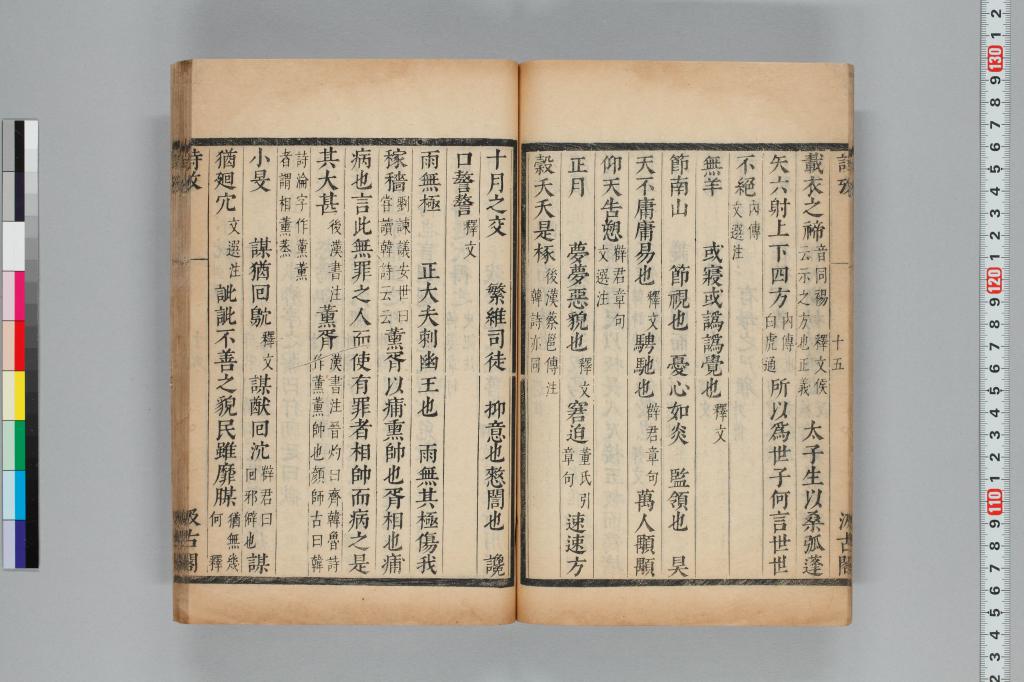 載衣之禘音同禓釋文侯云示之方也正義太子生以桑弧蓬
矢六射上下四方內傳白虎通所以爲世子何言世世
不絕內傳文選注
無羊　或寢或譌譌覺也釋文
節南山　節視也　憂心如炎　監領也　昊
天不庸庸易也釋文騁馳也薛君章句萬人顒顒
仰天告愬薛君章句文選注
正月　夢夢惡貌也釋文窘迫董氏引章句速速方
穀夭夭是椓後漢蔡邕傳注韓詩亦同
十五
汲古閣
十月之交　繁維司徒　抑意也憖誾也　讒
口謷謷釋文
雨無極　正大夫刺幽王也　雨無其極傷我
稼穡劉諫議安世曰嘗讀韓詩云云薰胥以痡熏帥也胥相也痡
病也言此無罪之人而使有罪者相帥而病之是
其大甚後漢書注薰胥漢書注晉灼曰齊韓魯詩作薰薰帥也顏師古曰韓
詩淪字作薰薰者謂相薰蒸
小旻　謀猶回鴥釋文謀猷回泬薛君曰回邪僻也謀
猶廻穴文選注訿訿不善之貌民雖靡腜猶無幾何釋
詩攷
汲古閣
130
120
110